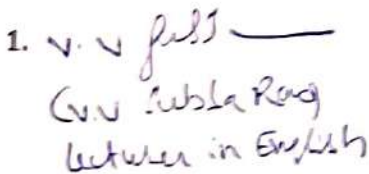 1. V. V
(V.V Subba Rao)
Lecturer in English